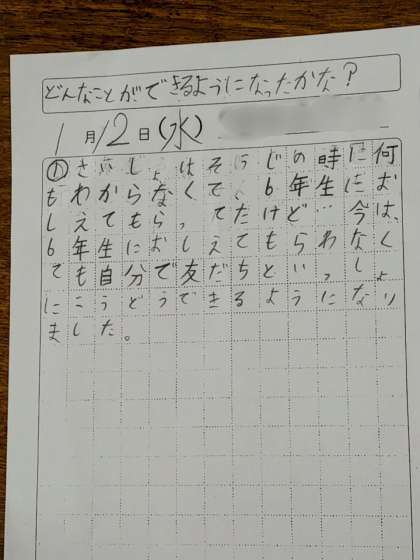 どんなことができるようになったかな?
1月12日(水)
①さいしょはそうじの時に何
もわからなくて、6年生にお
しえてもらってたけど…今は、
6年生におしえてもらわなく
ても自分で友だちといっしょ
にこうどうできるようになり
ました。